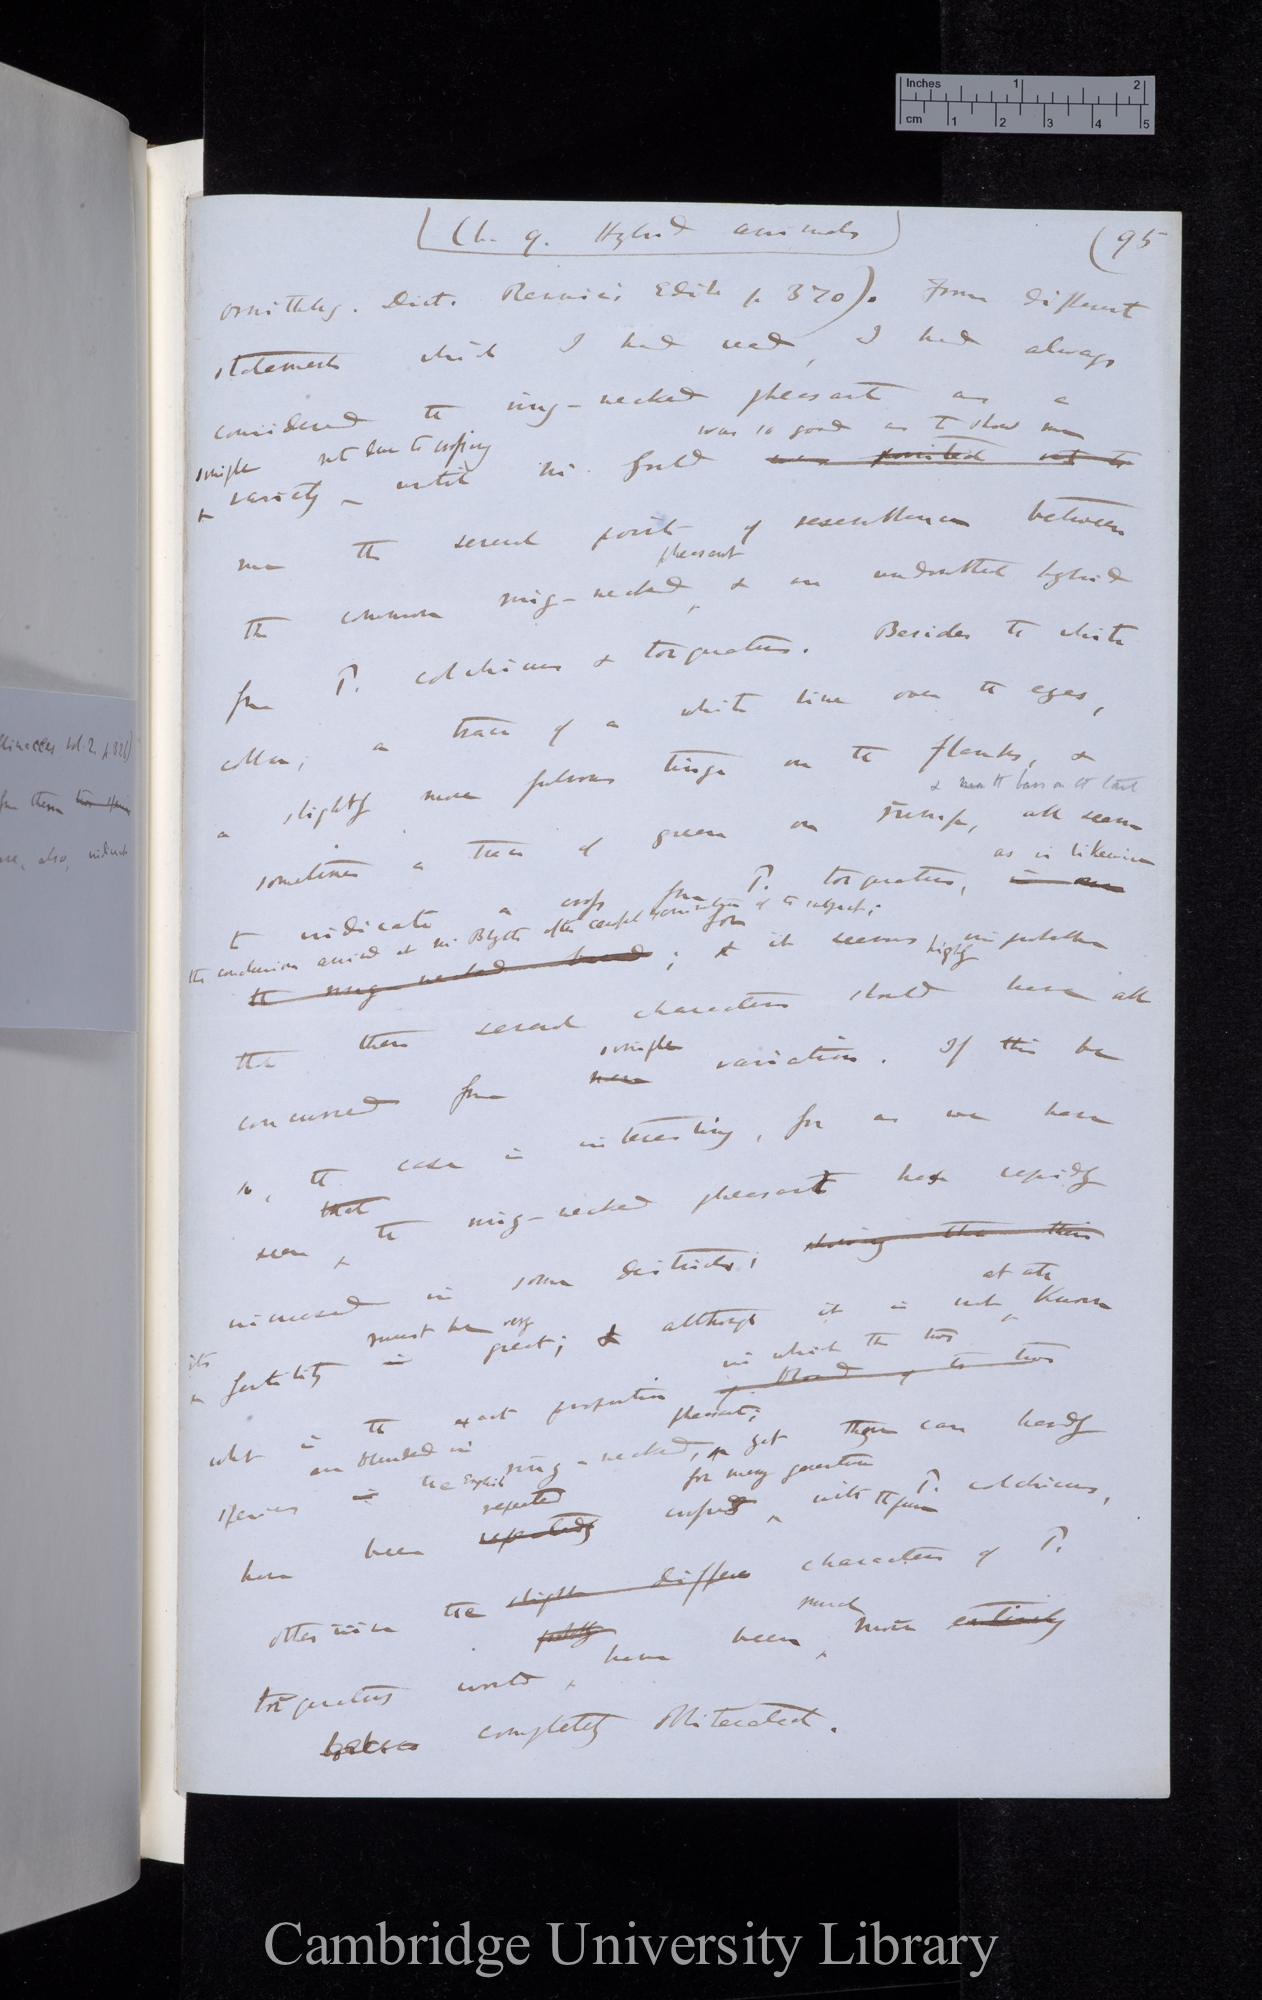 Inches 1 2
cm 1 2 3 4 5
Ch. 9. Hybrid animals
(95
Ornitholog. Dict. Rennie's Edit p. 370). From different
statements which I had read, I had always
considered the ring-necked pheasant as a
simple not due to crossing was so good as to show me
variety – until Mr. Gould was pointed out to
me the several points of resemblance between
pheasant
the common ring-necked & an undoubted hybrid
from P. colchicus & torquatus. Besides the white
collar; a trace of a white line over the eyes,
a slightly more fulvous tinge on the flanks, &
& the bars on the tail
sometimes a trace of green on rump, all seem
as is likewise
to indicate a cross from P. torquatus, is
the conclusion arrived at Mr Blyth after careful of the subject; for
the ring-necked breed; & it seems improbable
highly
that these several characters should have all
simple
concurred from mere variation. If this be
so, the case is interesting, for as we have
that
seen, the ring-necked pheasant has rapidly
increased in some districts; showing that their
at all
its must be very
fertility is great; & although it is not known
in which the two
what is the exact proportion of blood of the two
are blended in pheasant;
species is the English ring-necked, yet they can hardly
repeated for many generations
have been repeatedly crossed with P. colchicus,
with the pure
otherwise the slight differe characters of P.
probably much
torquatus would have been more entirely
completely obliterated.
vol. 2. p. 326)
from them
also,
Cambridge University Library